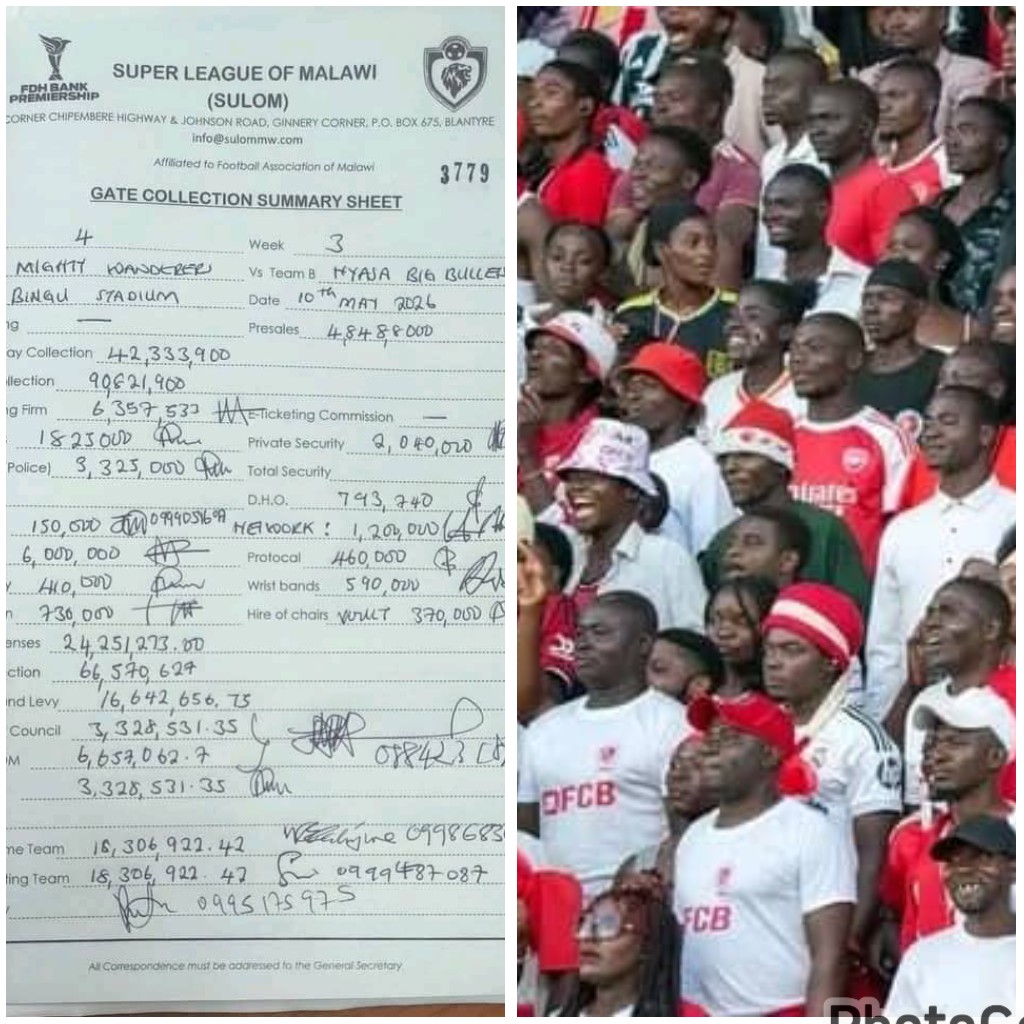 FDH BANK
PREMIERSHIP
SUPER LEAGUE OF MALAWI
(SULOM)
CORNER CHIPEMBERE HIGHWAY & JOHNSON ROAD, GINNERY CORNER, P.O. BOX 675, BLANTYRE
info@sulommw.com
Affiliated to Football Association of Malawi
3779
GATE COLLECTION SUMMARY SHEET
4 Week 3
MIGHTY WANDERERS Vs Team B NYASA BIG BULLE
BINGU STADIUM Date 10th MAY 2026
ng — Presales 48488000
ay Collection 42,333,900
llection 90821,900
g Firm 6,357,533 E-Ticketing Commission —
1825000 Private Security 2,040,000
Police) 3,325,000 Total Security
D.H.O. 793,740
150,000 NETWORK: 1,200,000
6,000,000 Protocal 460,000
410,000 Wrist bands 590,000
n 730,000 Hire of chairs 370,000
enses 24,251,273.00
ction 66,570,627
nd Levy 16,642,656.75
Council 3,328,531.35
M 6,657,062.7
3,328,531.35
me Team 18,306,922.42
ting Team 18,306,922.42 0999487087
0995175975
All Correspondence must be addressed to the General Secretary
Emirates
FCB
FCB